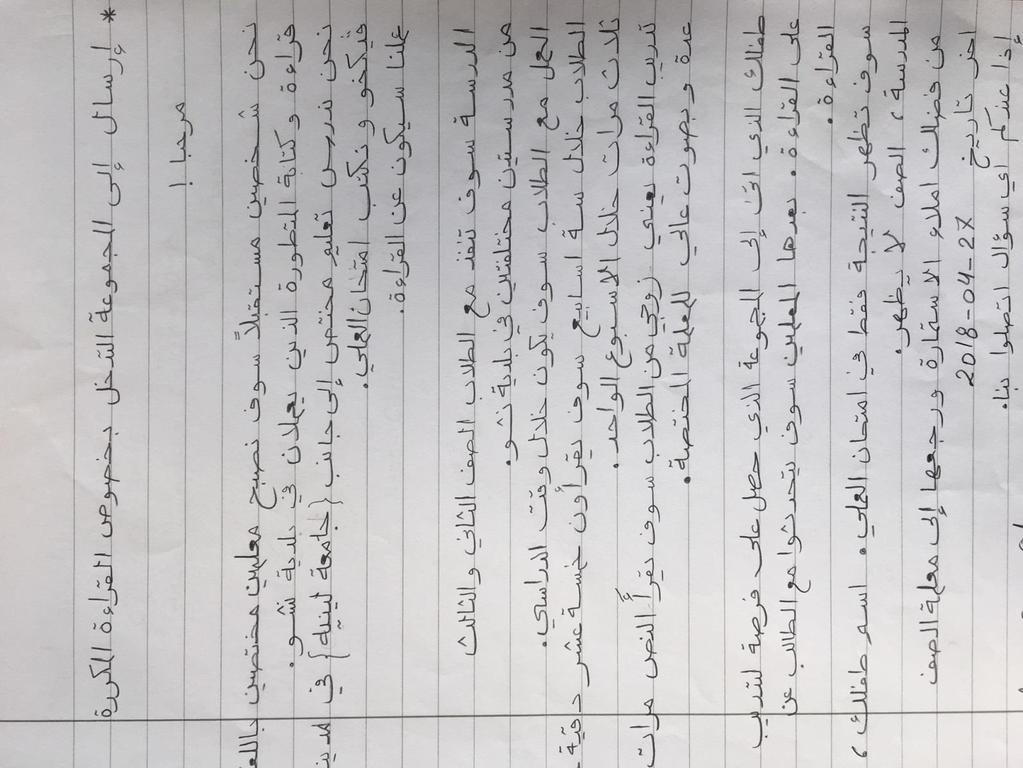 * إرسال إلى المجموعة التدخل بخصوص القراءة المكررة
مرحبا !
نحن شخصين مستقبلاً سوف نصبح معلمين مختصين باللغ
قراءة وكتابة التطورة الذين يعملان في بلدية نشو.
نحن ندرس تعليم مختص إلى جانب {جامعة لينيه} في مدين
فيكحو ونكتب امتحان العلمي.
علنا سيكون عن القراءة.
الدرسة سوف تنفذ مع الطلاب الصف الثاني والثالث
من مدرستين مختلفتين في بلدية نشو.
العمل مع الطلاب سوف يكون خلال وقت الدراسي.
الطلاب خلال ستة اسابيع سوف يقرأون خمسة عشر دقيقة
ثلاث مرات خلال الاسبوع الواحد.
تدريب القراءة يعني زوجي من الطلاب سوف يقرأ النص مرات
عدة وبصوت عالي للمعلمة المختصة.
طفلك الذي اتى إلى المجموعة الذي حصل على فرصة لتدريب
على القراءة. بعدها المعلمين سوف يتحدثوا مع الطالب عن
القراءة.
سوف تظهر النتيجة فقط في امتحان العلمي. اسم طفلك ،
المدرسة ، الصف لا يظهر.
من فضلك املاء الاستمارة ورجعها إلى معلمة الصف
اخر تاريخ 2018-04-27
إذا عندكم أي سؤال اتصلوا بنا.